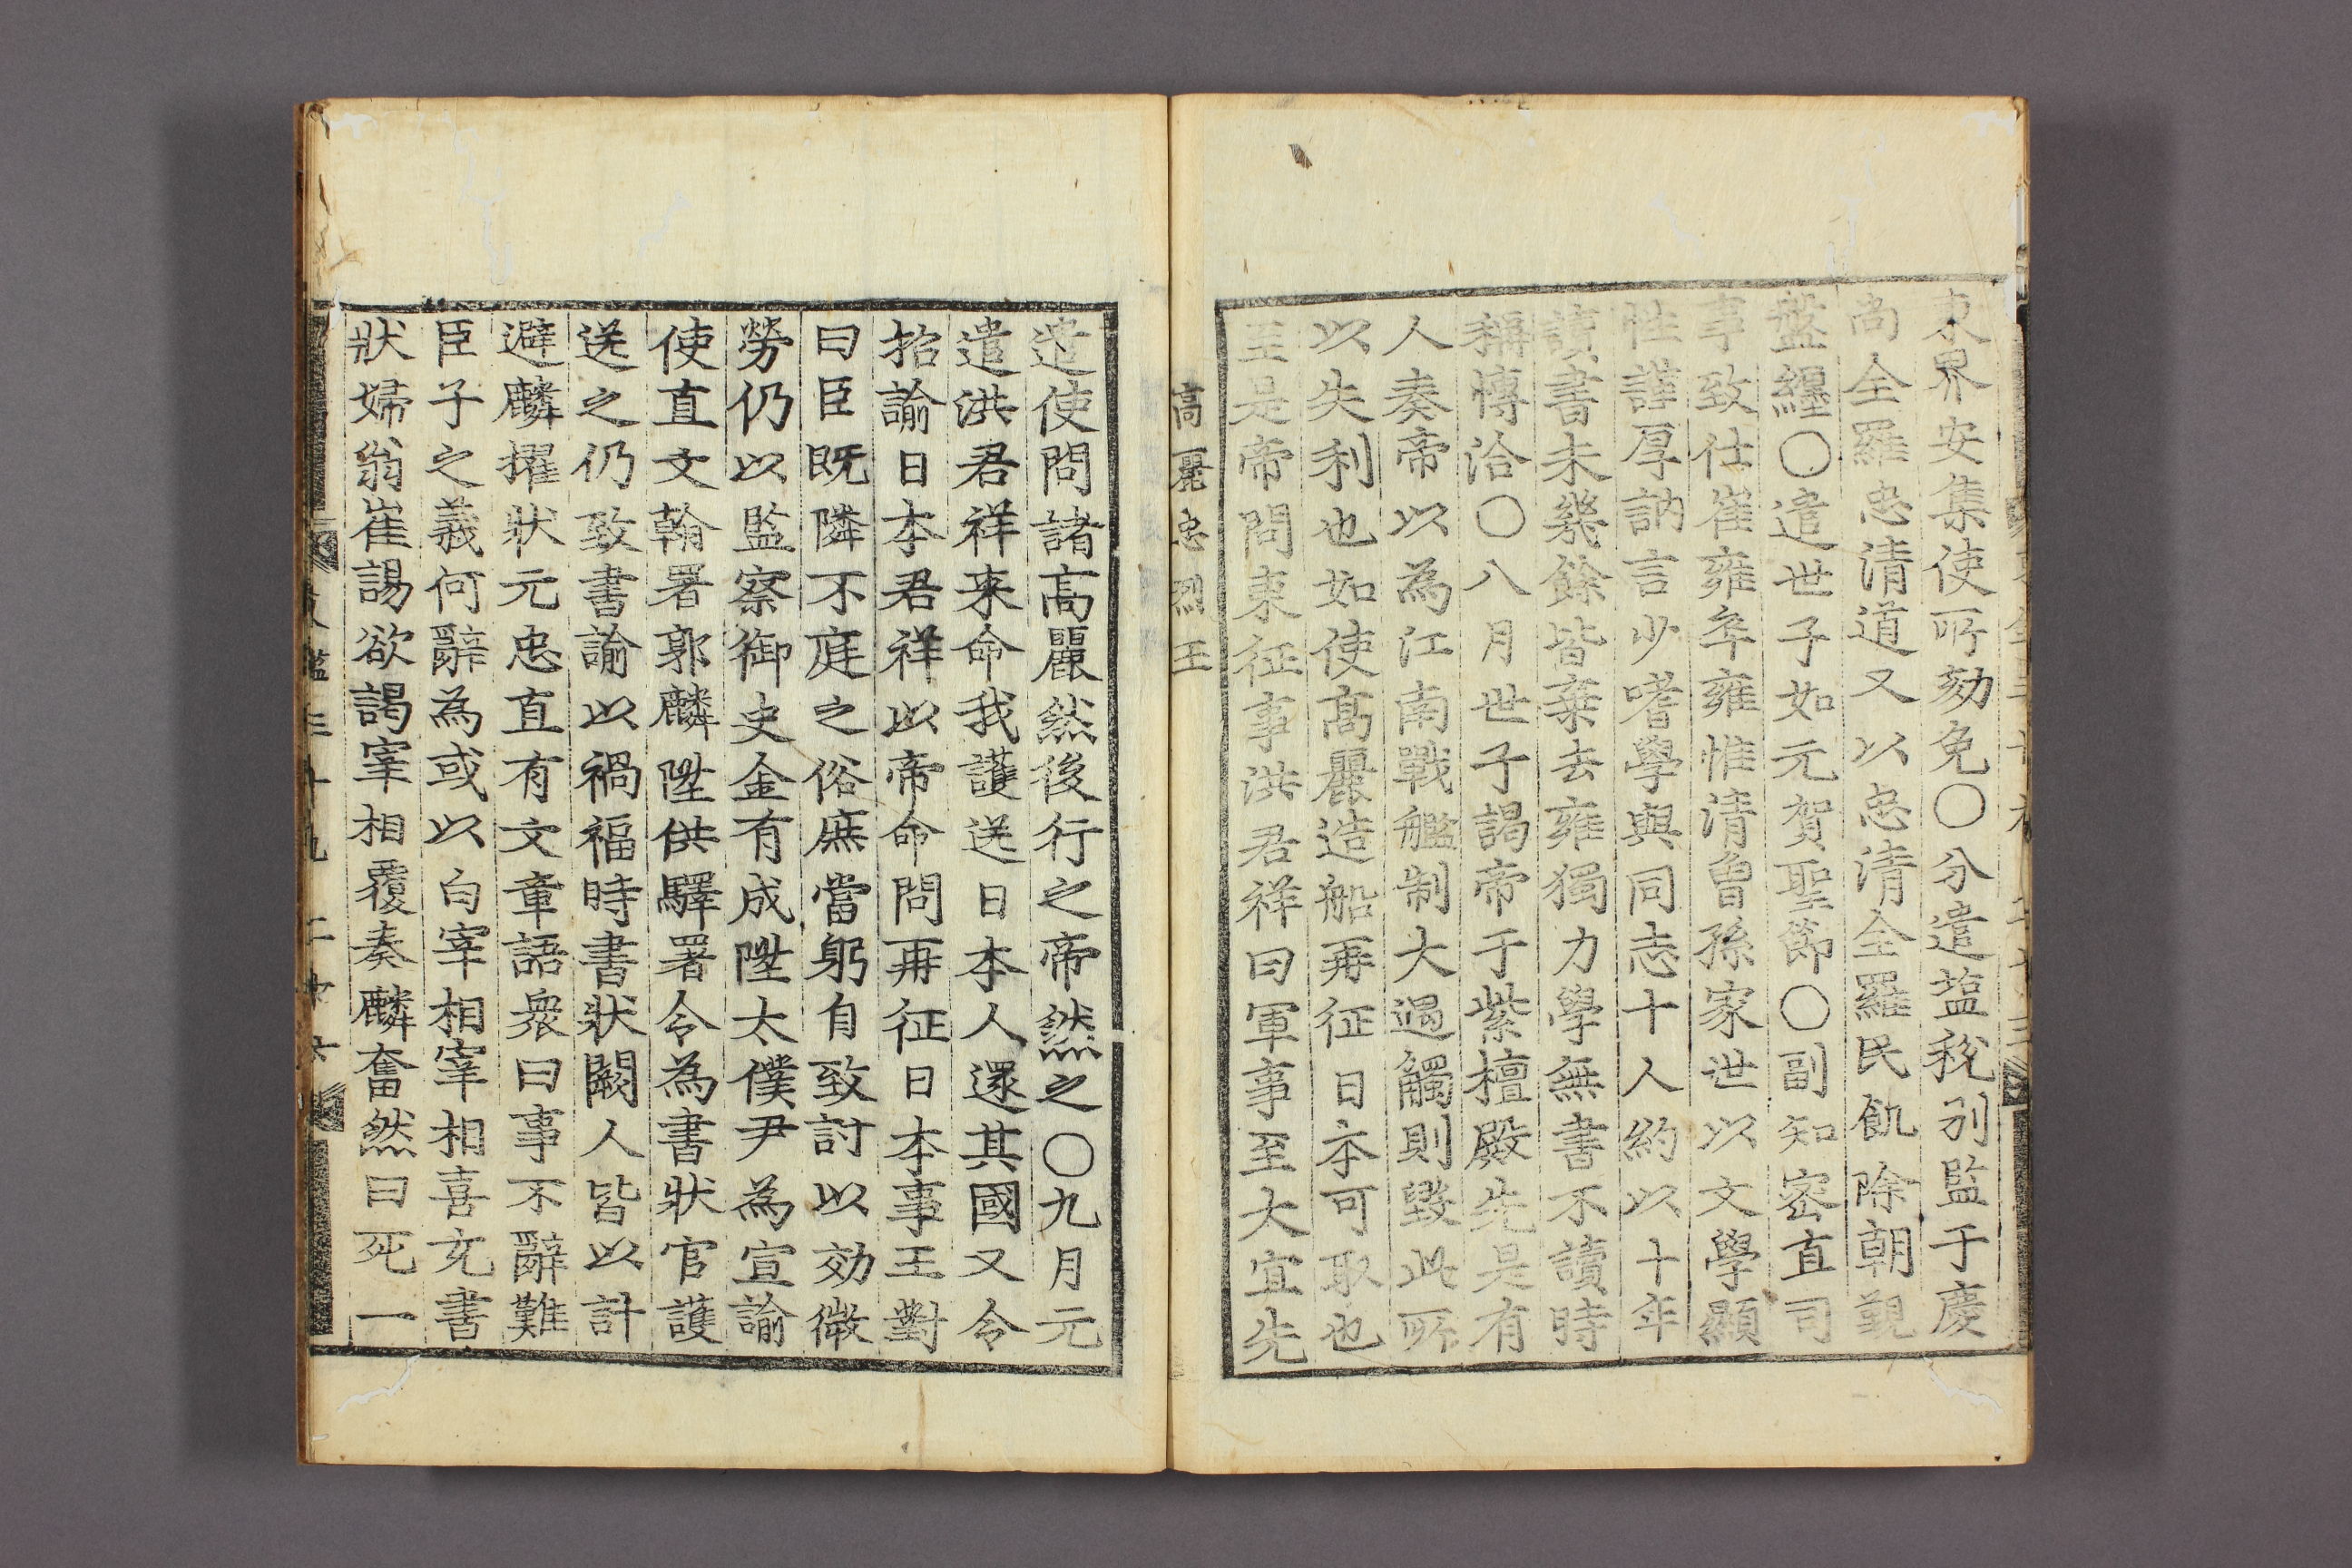 東界安集使所劾免○分遣塩稅別監于慶
尚全羅忠清道又以忠清全羅民飢除朝覲
盤纏○遣世子如元賀聖節○副知密直司
事致仕崔雍卒雍惟清曾孫家世以文學顯
性謹厚訥言少嗜學與同志十人約以十年
讀書未幾餘皆棄去雍獨力學無書不讀時
稱愽洽○八月世子謁帝于紫檀殿先是有
人奏帝以為江南戰艦制大遇觸則毀此所
以失利也如使髙麗造船再征日本可取也
至是帝問東征事洪君祥曰軍事至大宜先
高麗忠烈王
遣使問諸高麗然後行之帝然之○九月元
遣洪君祥来命我護送日本人還其國又令
招諭日本君祥以帝命問再征日本事王對
曰臣既隣不庭之俗庶當躬自致討以効微
勞仍以監察御史金有成陞太僕尹為宣諭
使直文翰署郭麟陞供驛署令為書狀官護
送之仍致書諭以禍福時書狀闕人皆以計
避麟擢狀元忠直有文章語衆曰事不辭難
臣子之義何辭為或以白宰相宰相喜充書
狀婦翁崔諹欲謁宰相覆奏麟奮然曰死一